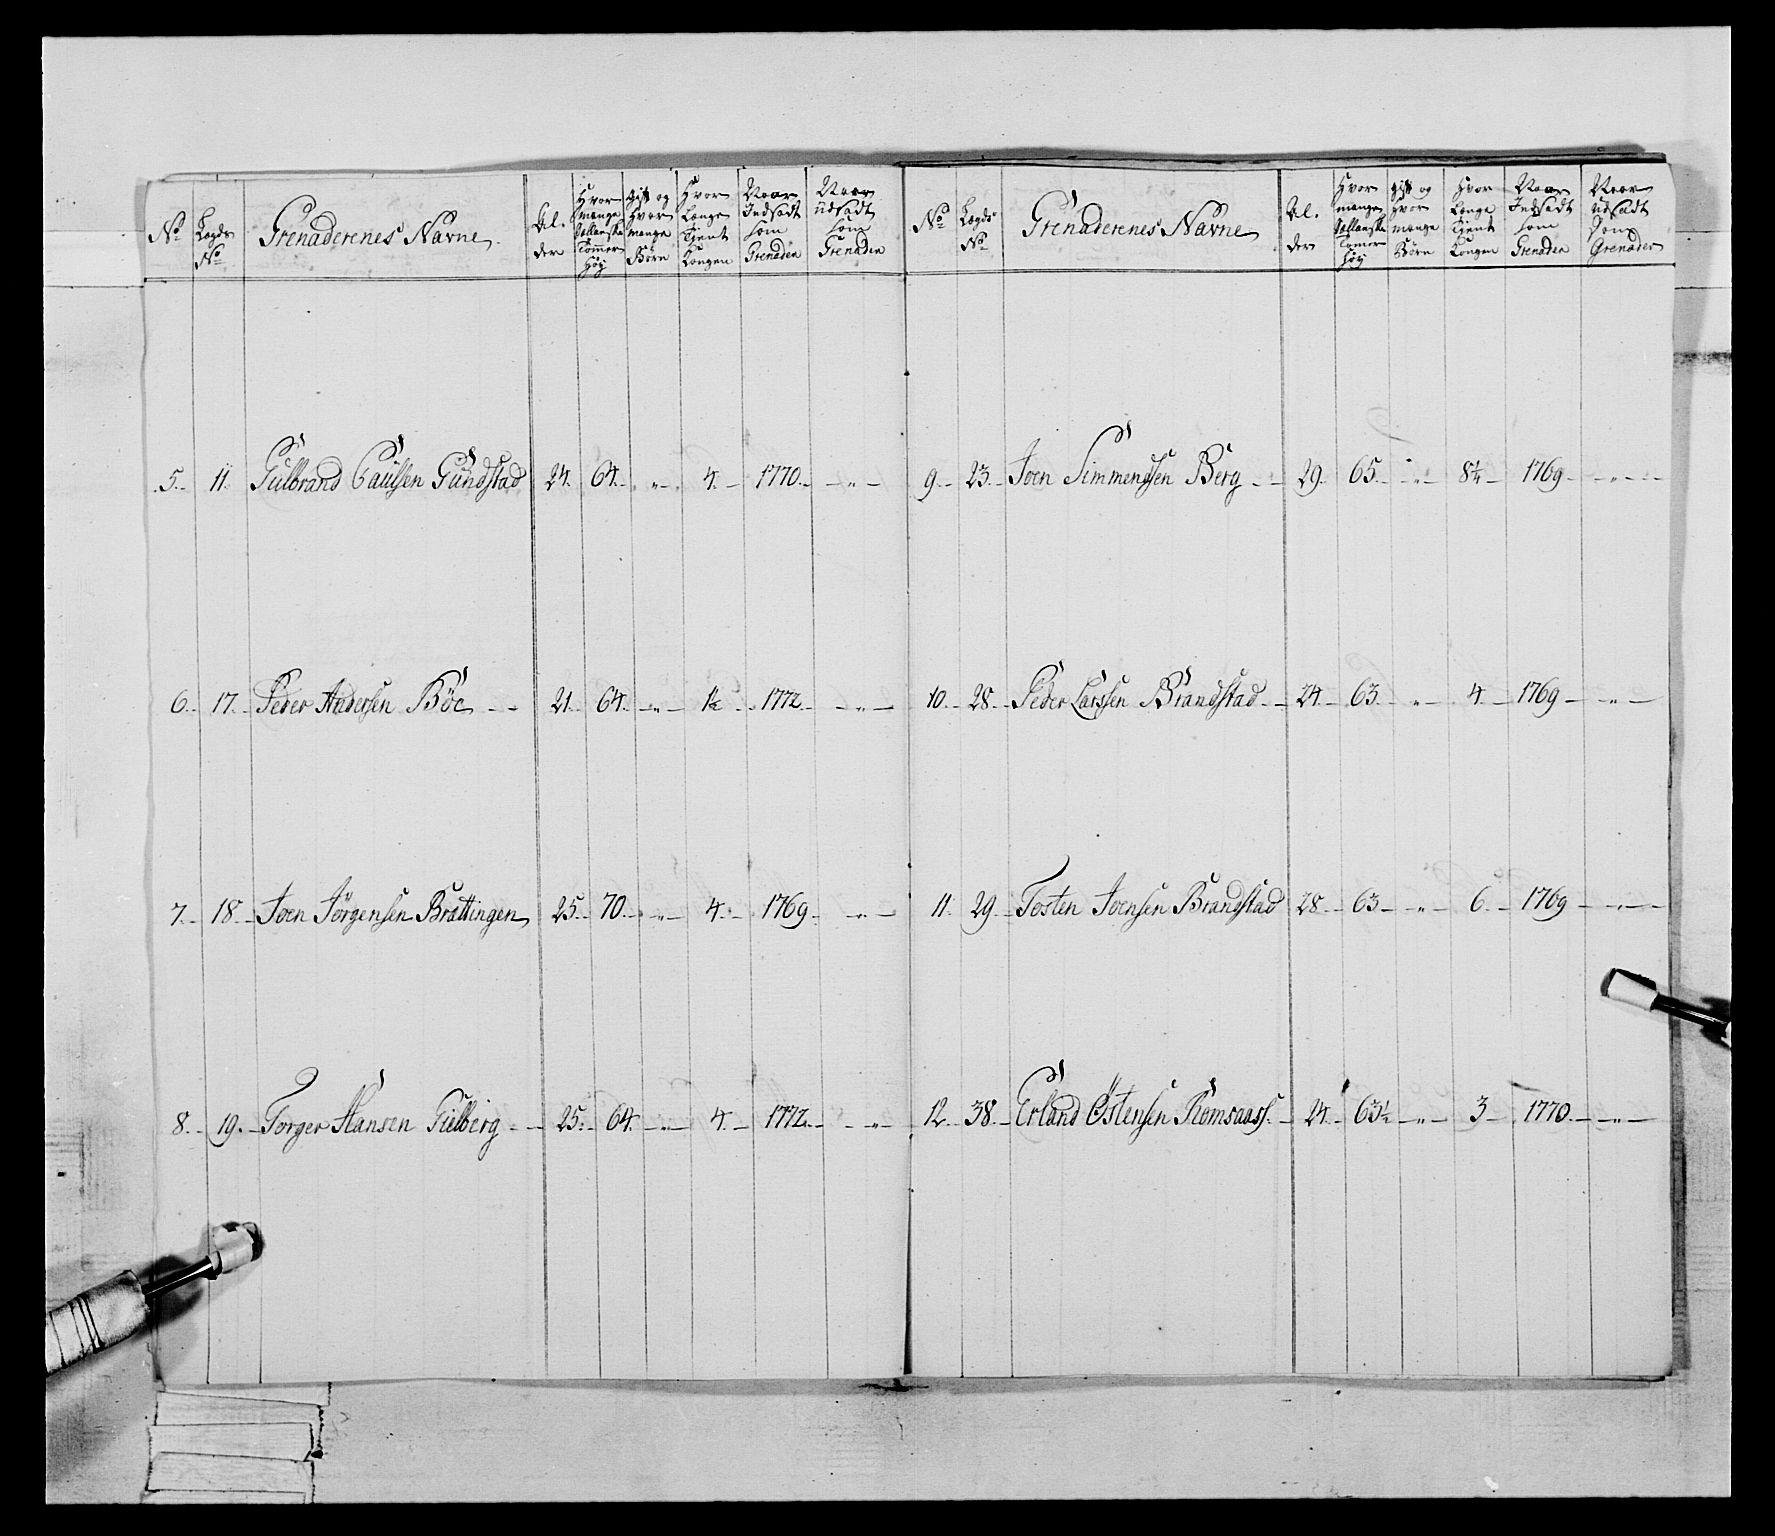 No Lægds No Grenaderenes Navne Al. der Hvor mange Sællanske Tommer Høy gift og Hvor mange Børn Hvor Længe Tient Kongen Naar Indsadt som Grenader Naar Udsadt som Grenader
5. 11. Gulbrand Paulsen Gundstad 24. 64. " 4. 1770. "
6. 17. Peder Andersen Böe 21. 64. " 1½ 1772. "
7. 18. Joen Jörgensen Brattingen 25. 70. " 4. 1769. "
8. 19. Torger Hansen Fielberg 25. 64. " 4. 1772. "
No Lægds No Grenaderenes Navne Al. der Hvor mange Sællanske Tommer Høy gift og Hvor mange Børn Hvor Længe Tient Kongen Naar Indsadt som Grenader Naar Udsadt som Grenader
9. 23. Joen Simmensen Berg 29. 65. " 8¼ 1769 "
10. 28. Peder Larssen Brandstad 24. 63. " 4. 1769 "
11. 29. Tosten Joensen Brandstad 28. 63 " 6. 1769 "
12. 38. Erland Östensen Romsaass. 24. 63½ " 3 1770. "